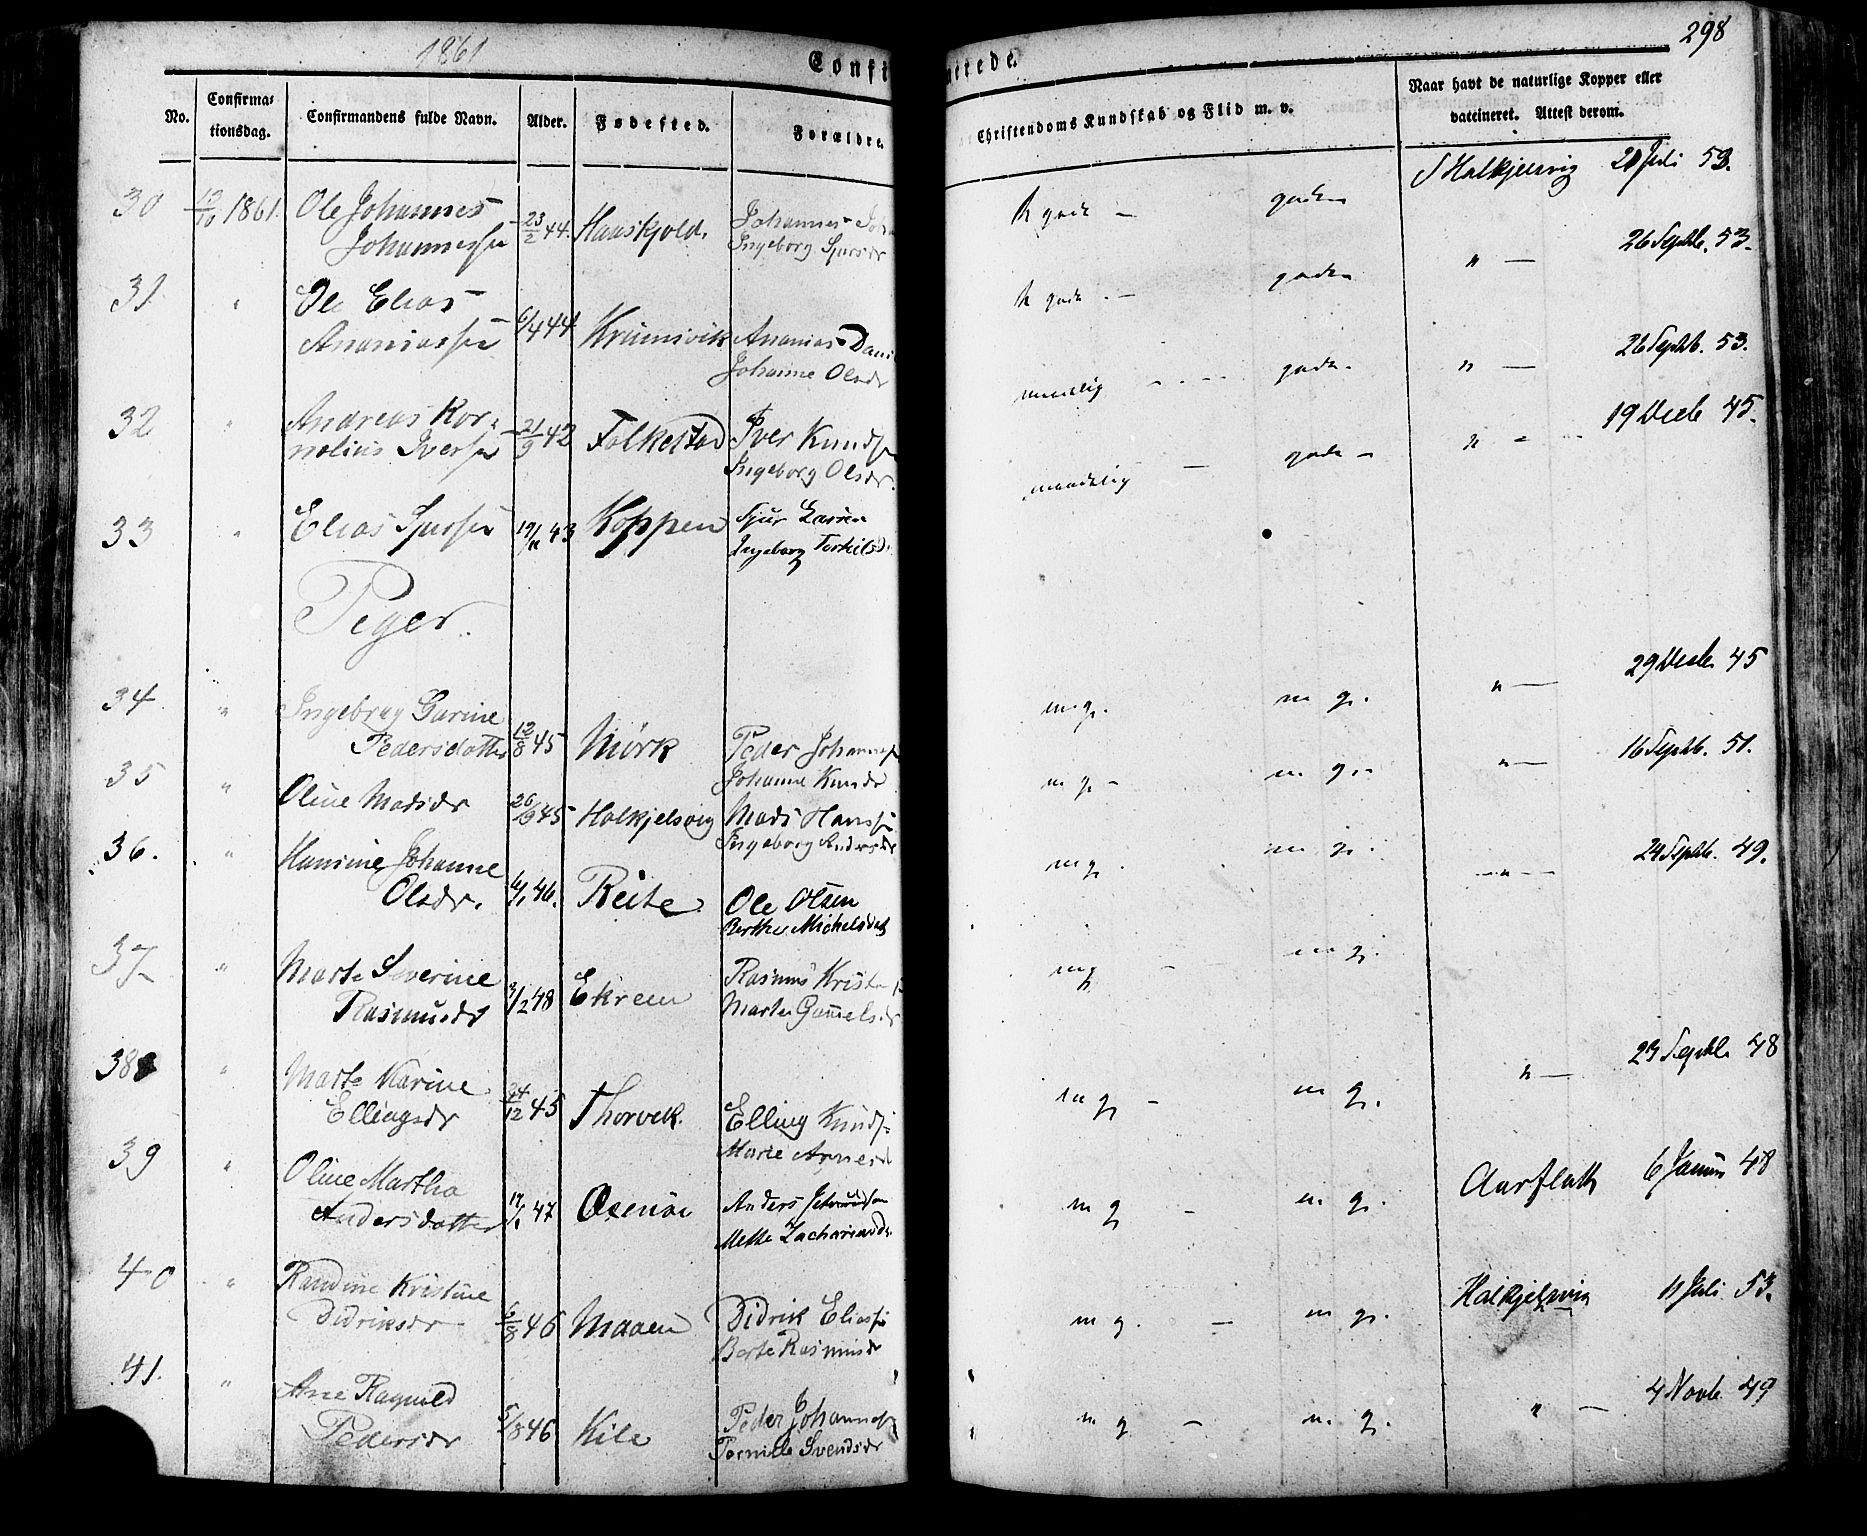 1861
298
Confi
merede.
No.
Confirma-
tionsdag.
Confirmandens fulde Navn.
Alder.
Fødested.
Forældre.
Christendoms Kundskab og Flid m. v.
Naar havt de naturlige Kopper eller
vaccineret. Attest derom.
30 13/10 1861. Ole Johannes Johannessen 23/2 44. Haaskjold. Johannes Ingeborg Sjursdr gode gode Halkjelsvig Juli 53.
31 " Ole Elias Ananiassen 6/4 44 Krumsvik Ananias Dani Johanne Olsdr gode gode " 26 Septb. 53.
32 " Andreas Kornelius Iversen 21/9 42 Folkestad Iver Knuds Ingeborg Olsdr. maadelig gode " 26 Septb. 53.
33 " Elias Sjursen 19/11 43 Koppen Sjur Larsen Ingeborg Torkilsd. maadelig gode " 19 Decb 45.
Piger.
34 " Ingebrog Gurine Pedersdatter 12/8 45 Mørk Peder Johannes Johanne Knudsdr m. g. m g. " 29 Decb. 45
35 " Oline Madsdr 26/9 45 Halkjelsvig Mads Hanss Ingeborg Andersdr m g m g. " 16 Septb. 51.
36. " Hansine Johanne Olsdr. 46. Reite Ole Olsen Berthe Michelsdat m g. m g. " 24 Septb. 49.
37 " Marte Severine Rasmusdr 3/2 48 Ekrem Rasmus Krist Marte Gummelsdr m g m g.
38 " Marte Karine Ellingsdr 24/12 45 Thorvik. Elling Knuds Marie Arnesd m g m g. " 23 Septb. 48
39 " Oline Martha Andersdatter 17/1 47 Osenøe Anders Mette Zachariasd. m g m g. Aarflath 6 Januar 48
40 " Randine Kristine Didriksdr 6/8 46 Maaen Didrik Eliass Berte Rasmusdr m g. m g. Halkjelsvig 11 Juli 53.
41. " Ane Ragnild Pedersdr 5/8 46 Kile Peder Johannes Pernille Svendsdr m g m. g. " 4 Novb. 49